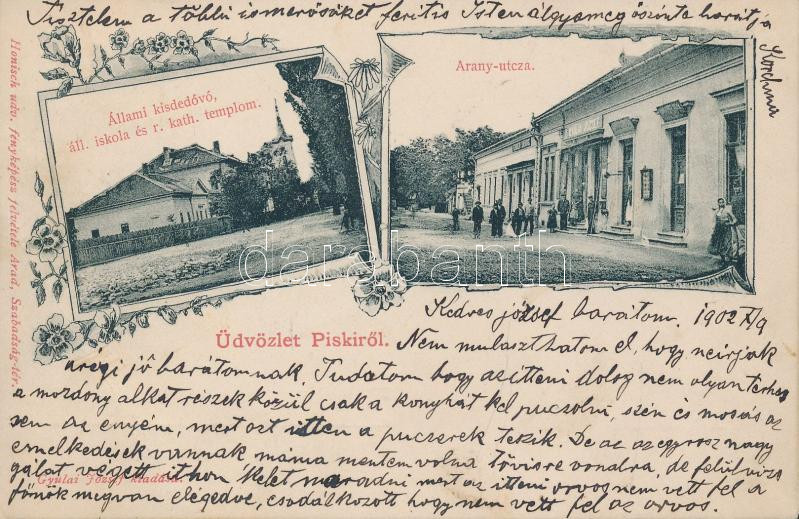 Tisztelem a többi ismerősöket feritis Isten álgya meg őszinte barátja
Korchma
Állami kisdedóvó,
áll. iskola és r. kath. templom.
Arany-utcza.
Honisch udv. fényképész felvétele Arad, Szabadság-tér.
darabanth
Üdvözlet Piskiről.
Kedves józsef barátom. 1902 X/9
Nem mulaszthatom el, hogy neirjak
a régi jó barátomnak. Tudatom hogy azitteni dolog nem olyan terhes
a mozdony alkat részek közül csak a konyhát kel puczolni, szén és mosás az
sem az enyém, mert ozt itten a puczerek teszik. De az az egy rosz nagy
emelkedések vannak máma mentem volna tövisre vonalra, de felülvizs
gálat végett itthon kelet maradni mert az itteni orvos nem vett fel a
főnök megvan elégedve, csodálkozott hogy nem vett fel az orvos.
Gyulai József kiadása.